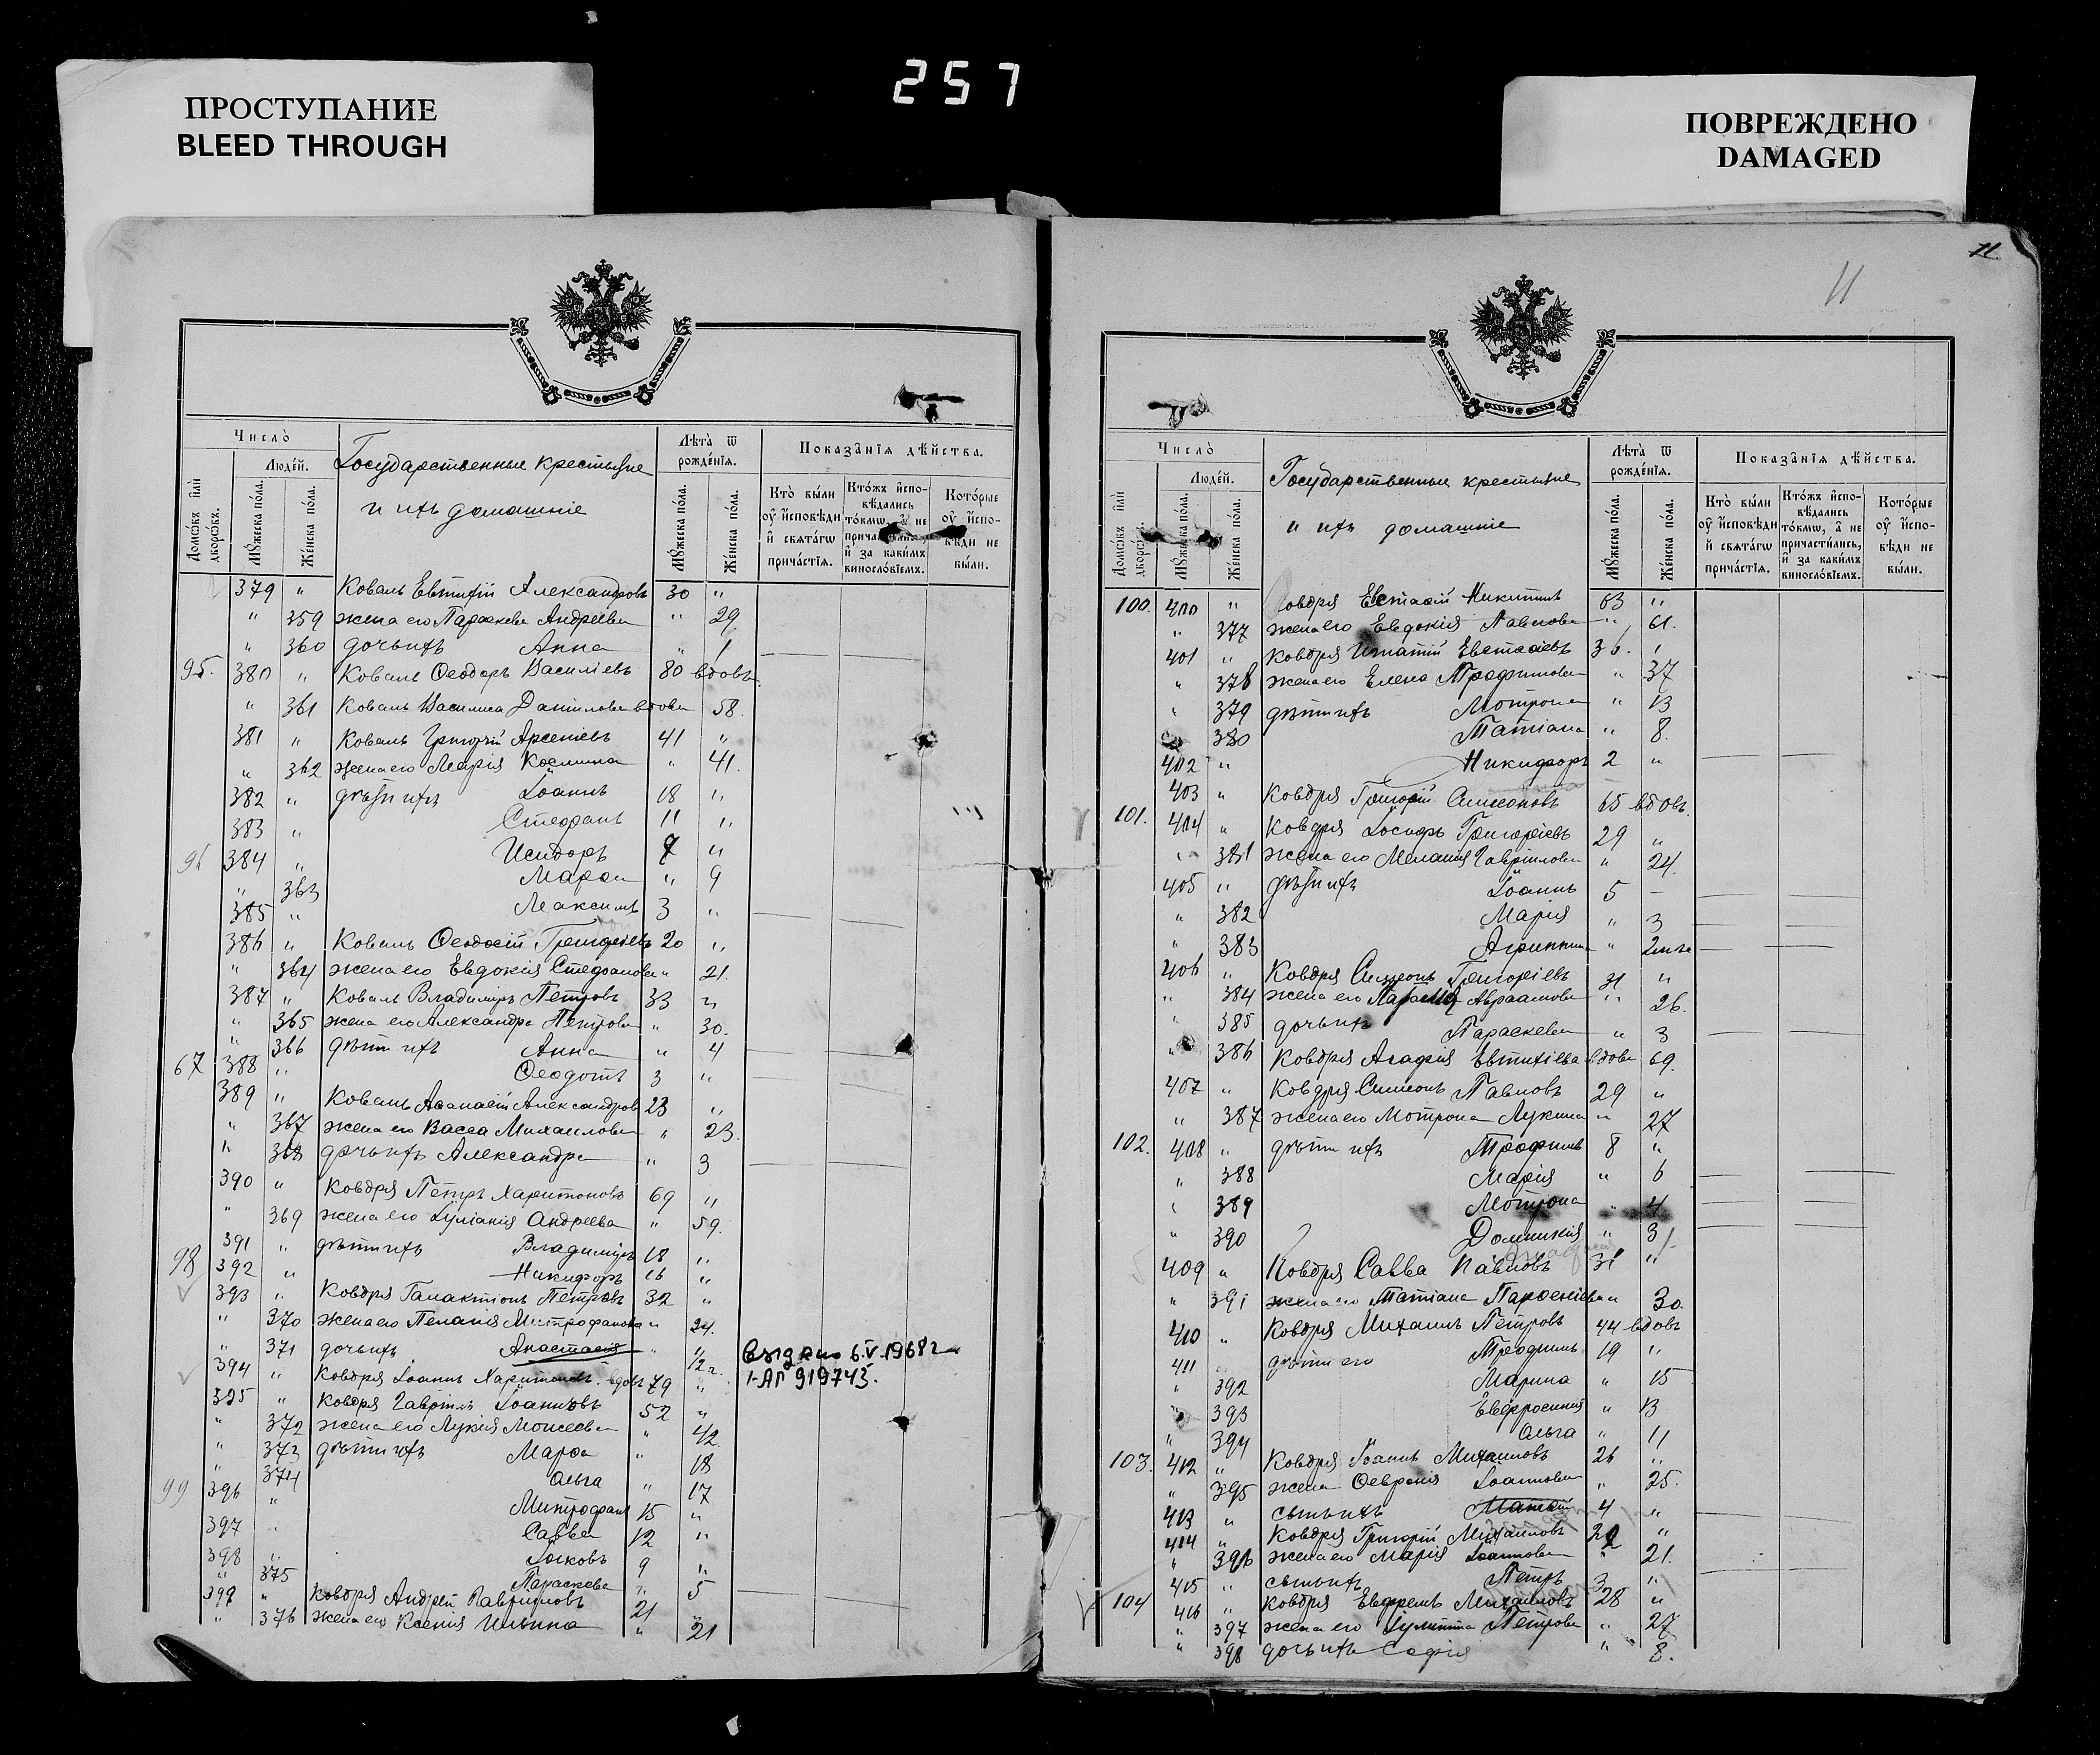 257
ПРОСТУПАНИЕ
BLEED THROUGH
ПОВРЕЖДЕНО
DAMAGED
Число̀
Люде́й.
Домѡ́въ и҆лѝ дворѡ́въ.
Мꙋ́жеска по́ла.
Же́нска по́ла.
Государственные крестьяне
и ихъ домашніе
Лѣта̀ ѿ рожде́нїѧ.
Мꙋ́жеска по́ла.
Же́нска по́ла.
Показа̑нїѧ дѣ́йства.
Кто̀ бы́ли ᲂу҆ и҆сповѣди и҆ свѧта́гѡ прича́стїѧ.
Кто́жъ и҆спо-вѣдались то́кмѡ, а҆ не и҆ за каки́мъ винослѡ́вїемъ.
Кото́рые ᲂу҆ и҆спо-вѣди не бы́ли.
379 " Коваль Евтихій Александровъ 30 "
" 359 жена его Параскева Андреева " 29
" 360 дочь ихъ Анна " 1
95. 380 " Коваль Ѳеодоръ Василіевъ 80 вдовъ
" 361 Коваль Василиса Даніилова вдова 58.
381 " Коваль Григорій Арсеніевъ 41 "
" 362 жена его Марія Косьмина " 41.
382 " дѣти ихъ Іоаннъ 18 "
383 " Стефанъ 11 "
96 384 " Исидоръ 7 "
" 363 Марѳа " 9
385 " Максимъ 3 "
386 " Коваль Ѳеодосій Григоріевъ 20 "
" 364 жена его Евдокія Стефанова " 21.
387 " Коваль Владиміръ Петровъ 33 "
" 365 жена его Александра Петрова " 30.
" 366 дѣти ихъ Анна " 4
67 388 " Ѳеодотъ 3 "
389 " Коваль Аѳанасій Александров 23 "
" 367 жена его Васса Михаилова " 23.
" 368 дочь ихъ Александра " 3
390 " Ковдря Петръ Харитоновъ 69 "
" 369 жена его Іуліанія Андреева " 59.
391 " дѣти ихъ Владиміръ 18 "
98 392 " Никифоръ 16 "
393 " Ковдря Галактіонъ Петровъ 32 "
" 370 жена его Пелагія Митрофанова " 24.
" 371 дочь ихъ Анастасія " 1/2 г.
Выдано 6.V.1968 г
I-АГ 919743.
394 " Ковдря Іоаннъ Харитоновъ вдовъ 79 "
395 " Ковдря Гавріилъ Іоанновъ 52 "
" 372 жена его Лукія Моисеева " 42.
" 373 дѣти ихъ Марѳа " 18
" 374 Ольга " 17
99 396 " Митрофанъ 15 "
397 " Савва 12 "
398 " Іаковъ 9 "
" 375 Параскева " 5
399 " Ковдря Андрей Гавриловъ 21 "
" 376 жена его Ксенія Ильина " 21
11
Число̀
Люде́й.
Домѡ́въ и҆лѝ
Мꙋ́жеска по́ла.
Же́нска по́ла.
Государственные крестьяне
и ихъ домашніе
Лѣта̀ ѿ рожде́нїѧ.
Мꙋ́жеска по́ла.
Же́нска по́ла.
Показа̑нїѧ дѣ́йства.
Кто̀ бы́ли ᲂу҆ и҆сповѣди и҆ свѧта́гѡ прича́стїѧ.
Кто́жъ и҆спо-вѣдались то́кмѡ, а҆ не причасти́лись, и҆ за каки́мъ винослѡ́вїемъ.
Кото́рые ᲂу҆ и҆спо-вѣди не бы́ли.
100. 400 " Ковдря Евстаѳій Никитинъ 63 "
" 377 жена его Евдокія Павлова " 61.
401 " Ковдря Игнатій Евстаѳіевъ 36. "
" 378 жена его Елена Трофимова " 37
" 379 дѣти ихъ Мотрона " 13
380 Татіана " 8.
402 " Никифоръ 2 "
403 " Ковдря Григорій Симеоновъ 65 вдовъ.
101. 404 " Ковдря Іосифъ Григоріевъ 29 "
" 381 жена его Меланія Гавріилова " 24.
405 " дѣти ихъ Іоаннъ 5 —
" 382 Марія " 3
" 383 Агриппина " 2
406 " Ковдря Симеонъ Григоріевъ 31 "
" 384 жена его Авраамова " 26.
" 385 дочь ихъ Параскева " 3
" 386 Ковдря Агафія Евтихіева вдова 69.
407 " Ковдря Симеонъ Павловъ 29 "
" 387 жена его Мотрона Лукина " 27
102. 408 " дѣти ихъ Трофимъ 8 "
" 388 Марія " 6
" 389 Мотрона " 4
" 390 Домникія " 3
409 " Ковдря Савва Павловъ 31 "
" 391 жена его Татіана Парѳеніева " 30.
410 " Ковдря Михаилъ Петровъ 44 вдовъ
411 " дѣти его Трофимъ 19 "
" 392 Марина " 15
" 393 Евфросинія " 13
" 394 Ольга " 11
103. 412 " Ковдря Іоаннъ Михаиловъ 26 "
" 395 жена Ѳевронія Іоаннова " 25.
413 " сынъ ихъ Матѳій 4 "
414 " Ковдря Григорій Михаиловъ 22 "
" 396 жена его Марія Іоаннова " 21.
415 " сынъ ихъ Петръ 3 "
104 416 " Ковдря Ефремъ Михаиловъ 28 "
" 397 жена его Іулитта Петрова " 27
" 398 дочь ихъ Софія " 8.